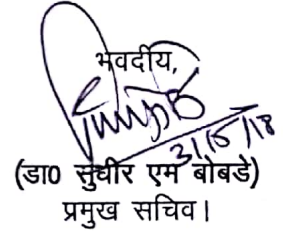 भवदीय,
31/5/18
(डा0 सुधीर एम बोबडे)
प्रमुख सचिव।